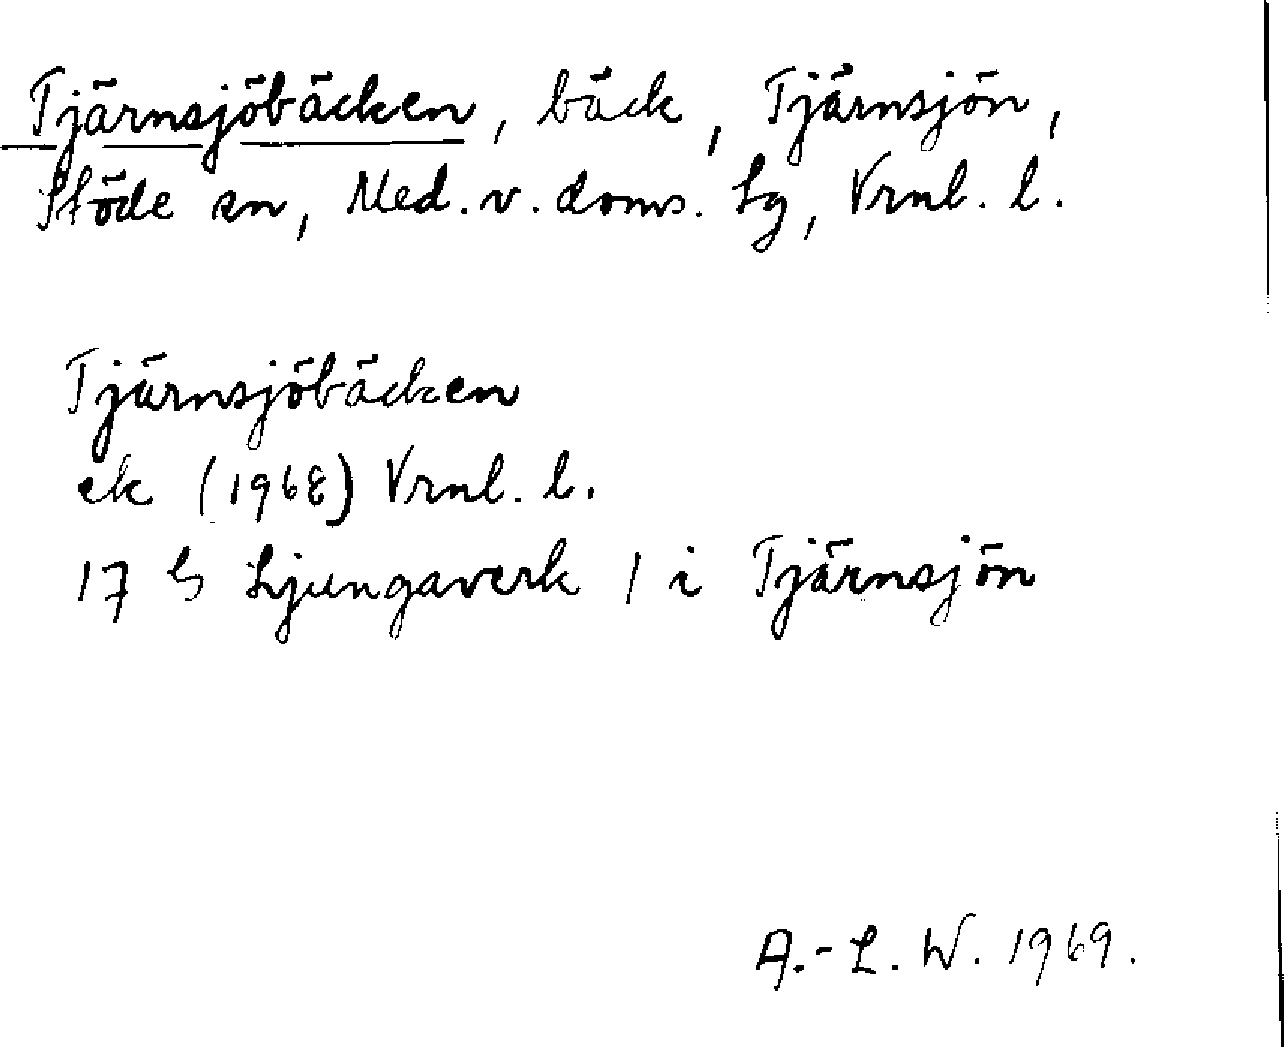 Tjärnsjöbäcken, bäck, Tjärnsjön,
Stöde sn, Med. v. doms. Lg, Vrnl. l.
Tjärnsjöbäcken
ek (1968) Vrnl. l.
17 G Ljungaverk 1 i Tjärnsjön
A.-L. W. 1969.